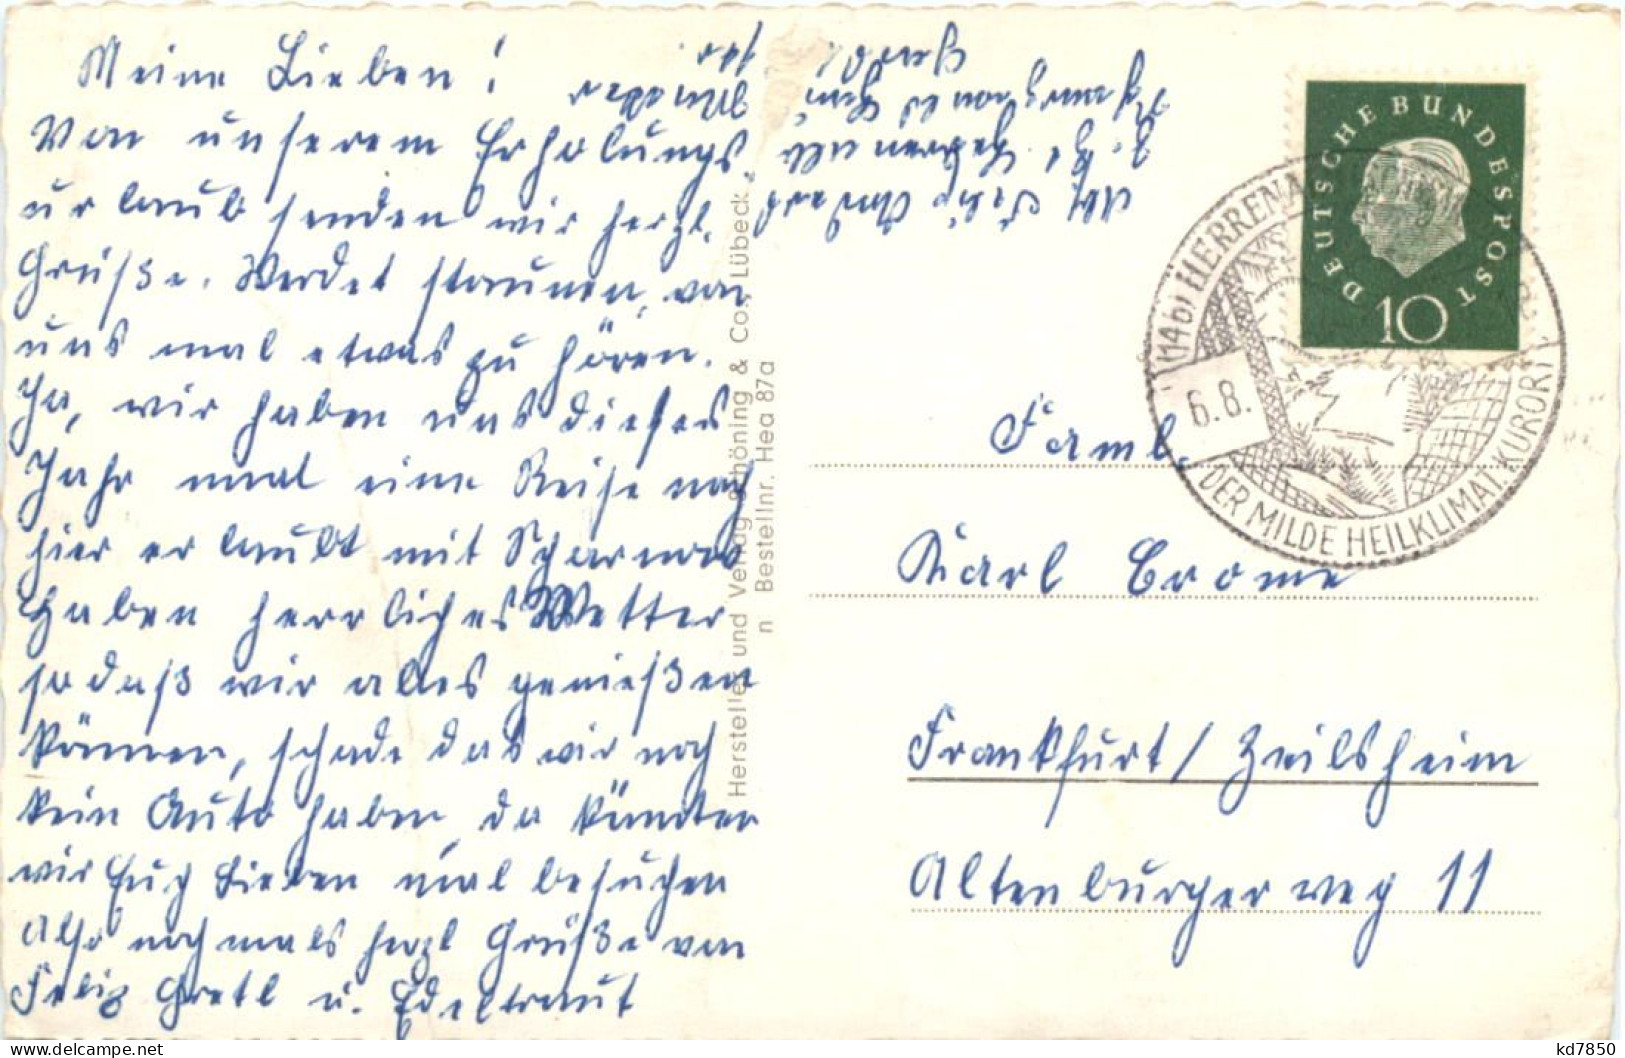 Meine Lieben!
Von unserem Erholungs
urlaub senden wir herzl.
Grüße. Werdet staunen, von
uns mal etwas zu hören.
Ja, wir haben uns dieses
Jahr mal eine Reise nach
hier erlaubt mit
Haben herrliches Wetter
so daß wir alles genießen
können, schade das wir noch
kein Auto haben, da könnten
wir Euch Lieben mal besuchen
Also nochmals herzl Grüße von
Felix Gretl u. Edeltraut
Hersteller und Verlag Schöning & Co., Lübeck
n Bestellnr. Hea 87a
DEUTSCHE BUNDESPOST
10
(14b) HERRENA
6.8.
DER MILDE HEILKLIMAT. KURORT
Faml.
Karl Crome
Frankfurt/Zeilsheim
Altenburgerweg 11
kd7850